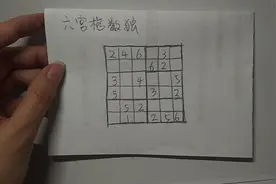 六宫格数独
2 4 6 3
6 2
3 4 5
5 3 2
5 2
1 2 5 6